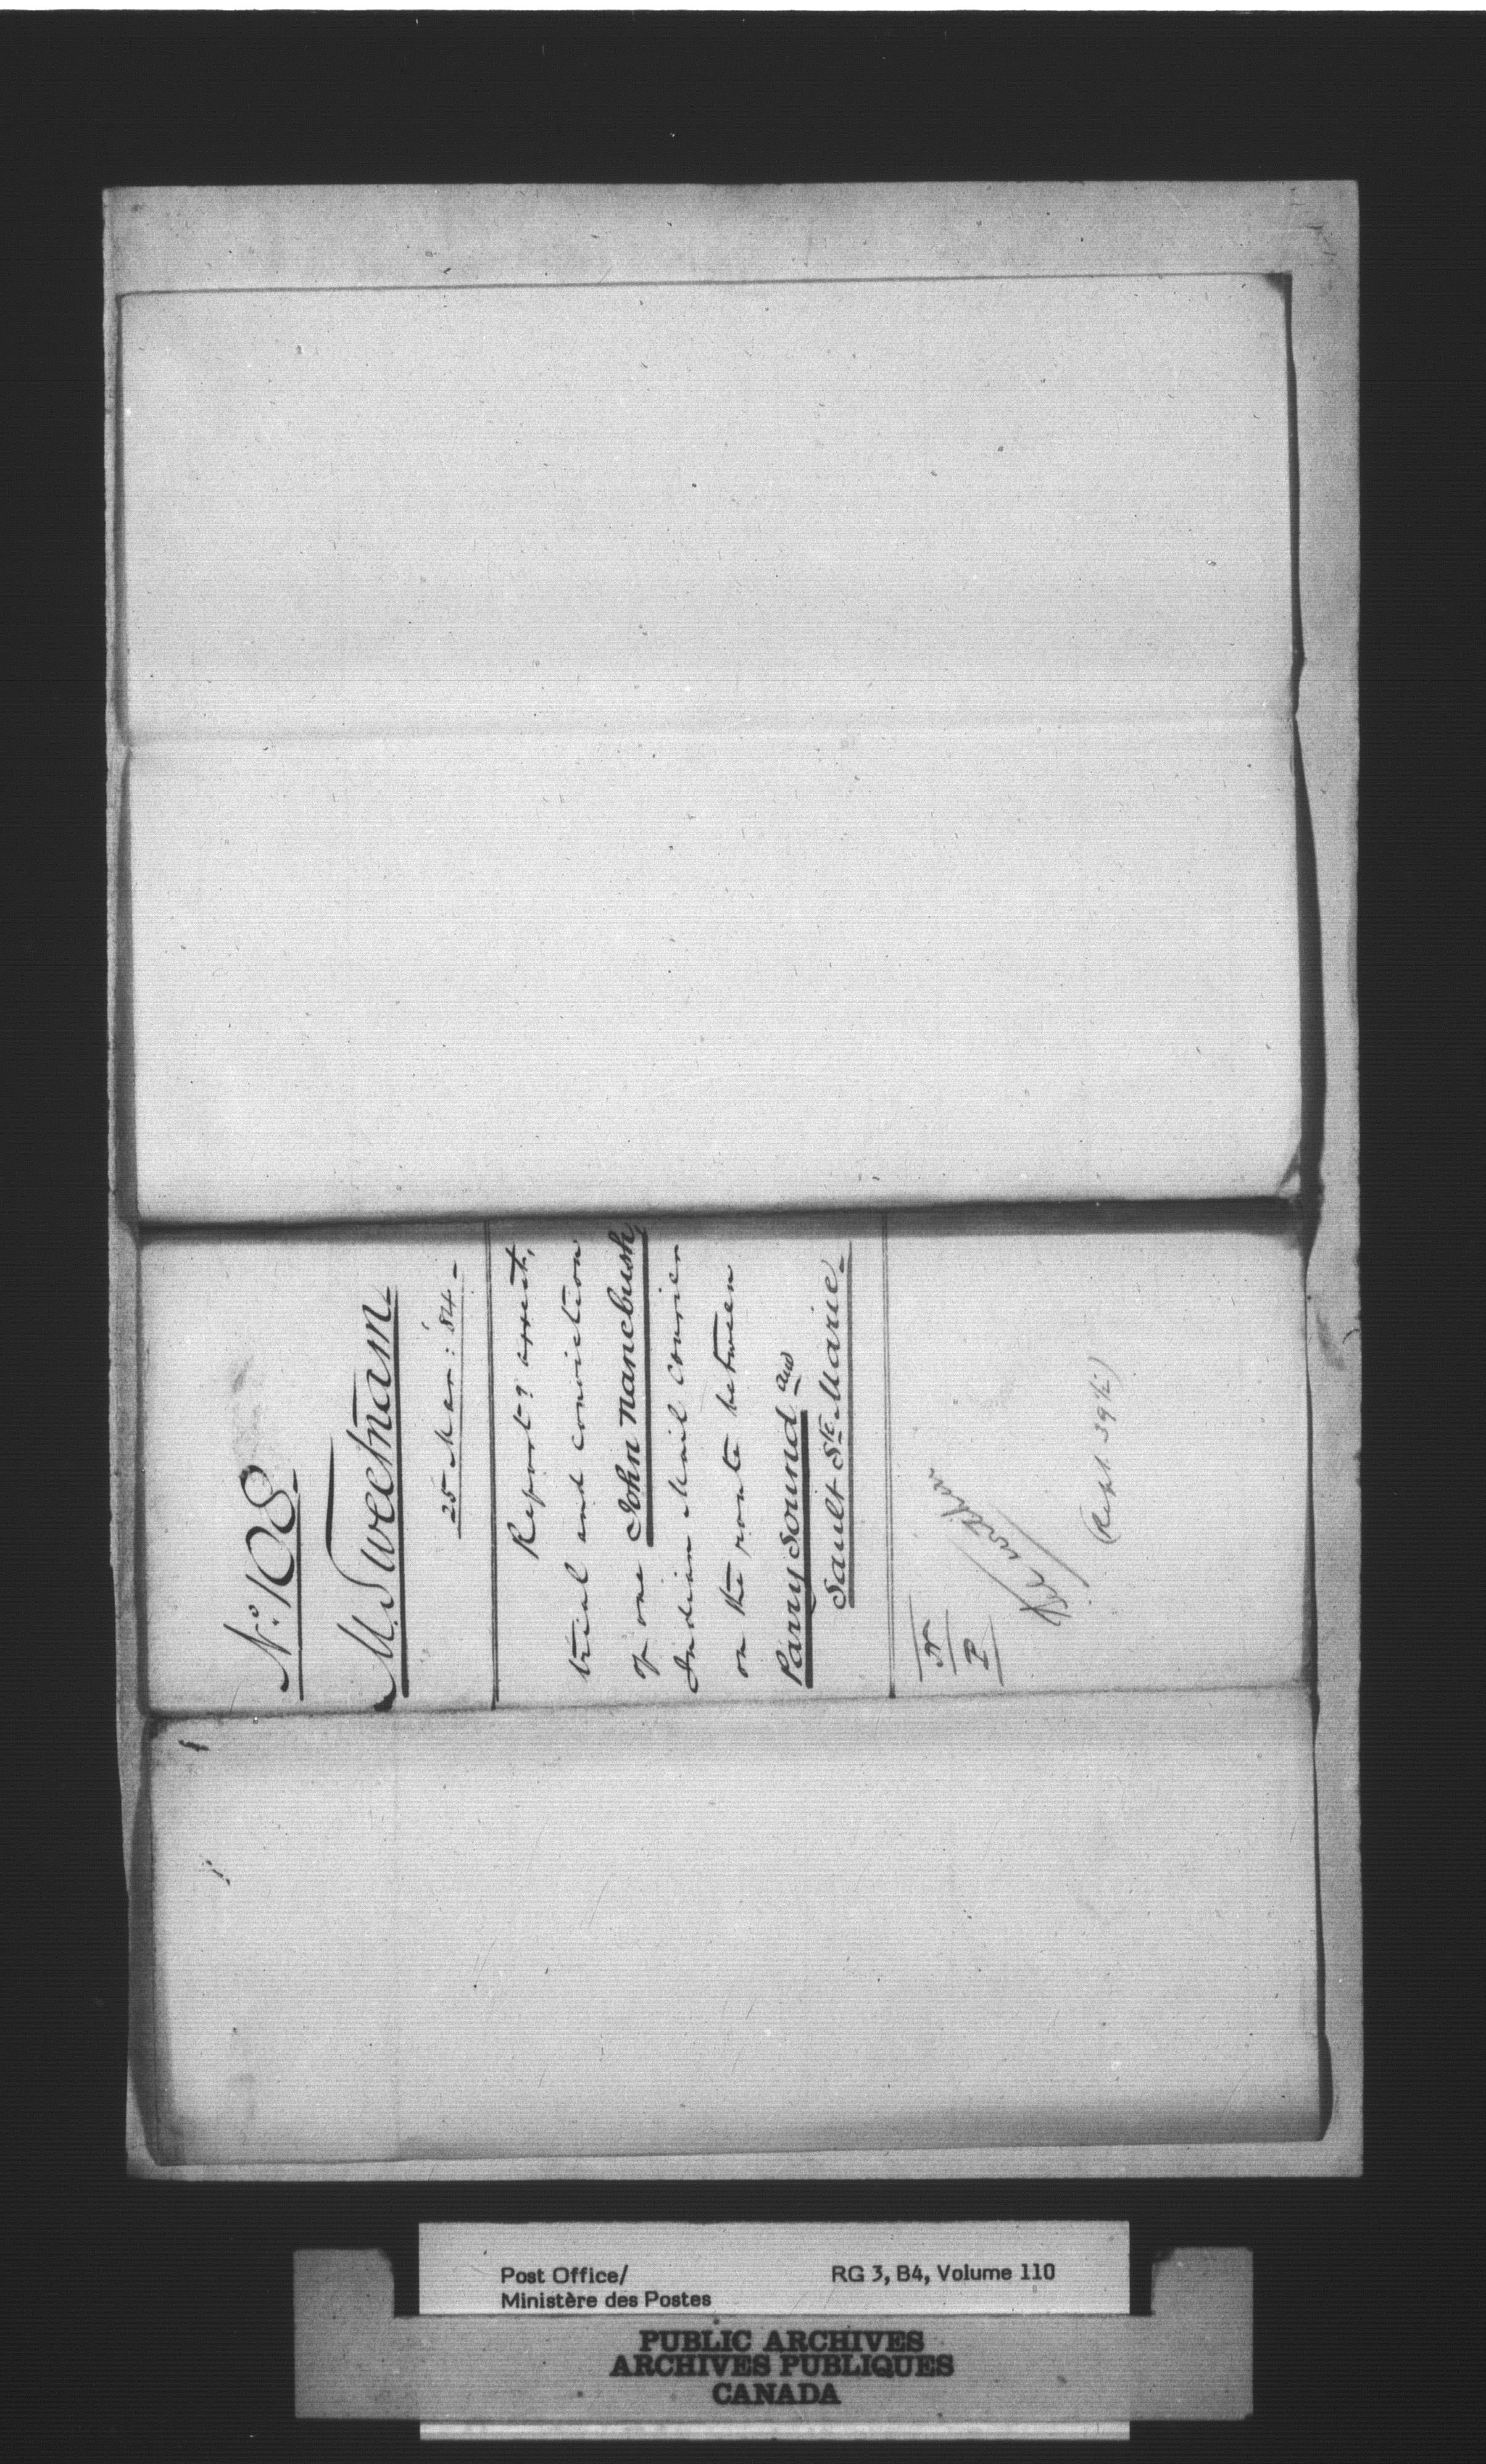 No. 108
M. Sweetnam
25 Mar: '84
Report: arrest,
trial and conviction
of one John Nanebush,
Indian Mail Courier
on the route between
Parry Sound and
Sault Ste. Marie.
N
P
(Rept. 39½)
Post Office/
Ministère des Postes
RG 3, B4, Volume 110
PUBLIC ARCHIVES
ARCHIVES PUBLIQUES
CANADA